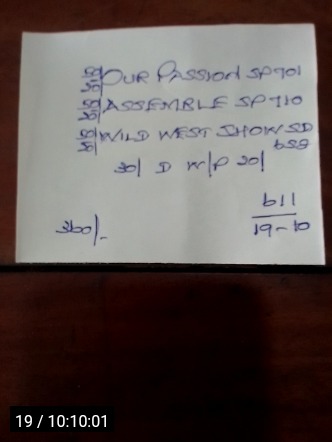 50/50 OUR PASSION SP701
50/20 ASSEMBLE SP710
50/50 WILD WEST SHOW SD
658
30/ D W/P 20/
611
360/-
19-10
19 / 10:10:01